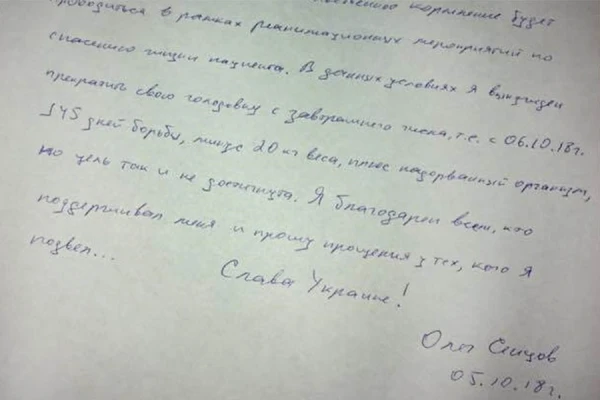 кормление будет
проводиться в рамках реанимационных мероприятий по
спасению жизни пациента. В данных условиях я вынужден
прекратить свою голодовку с завтрашнего числа, т.е. с 06.10.18г.
145 дней борьбы, минус 20 кг веса, плюс надорванный организм,
но цель так и не достигнута. Я благодарен всем, кто
поддерживал меня и прошу прощения у тех, кого я
подвел...
Слава Украине!
Олег Сенцов
05.10.18г.